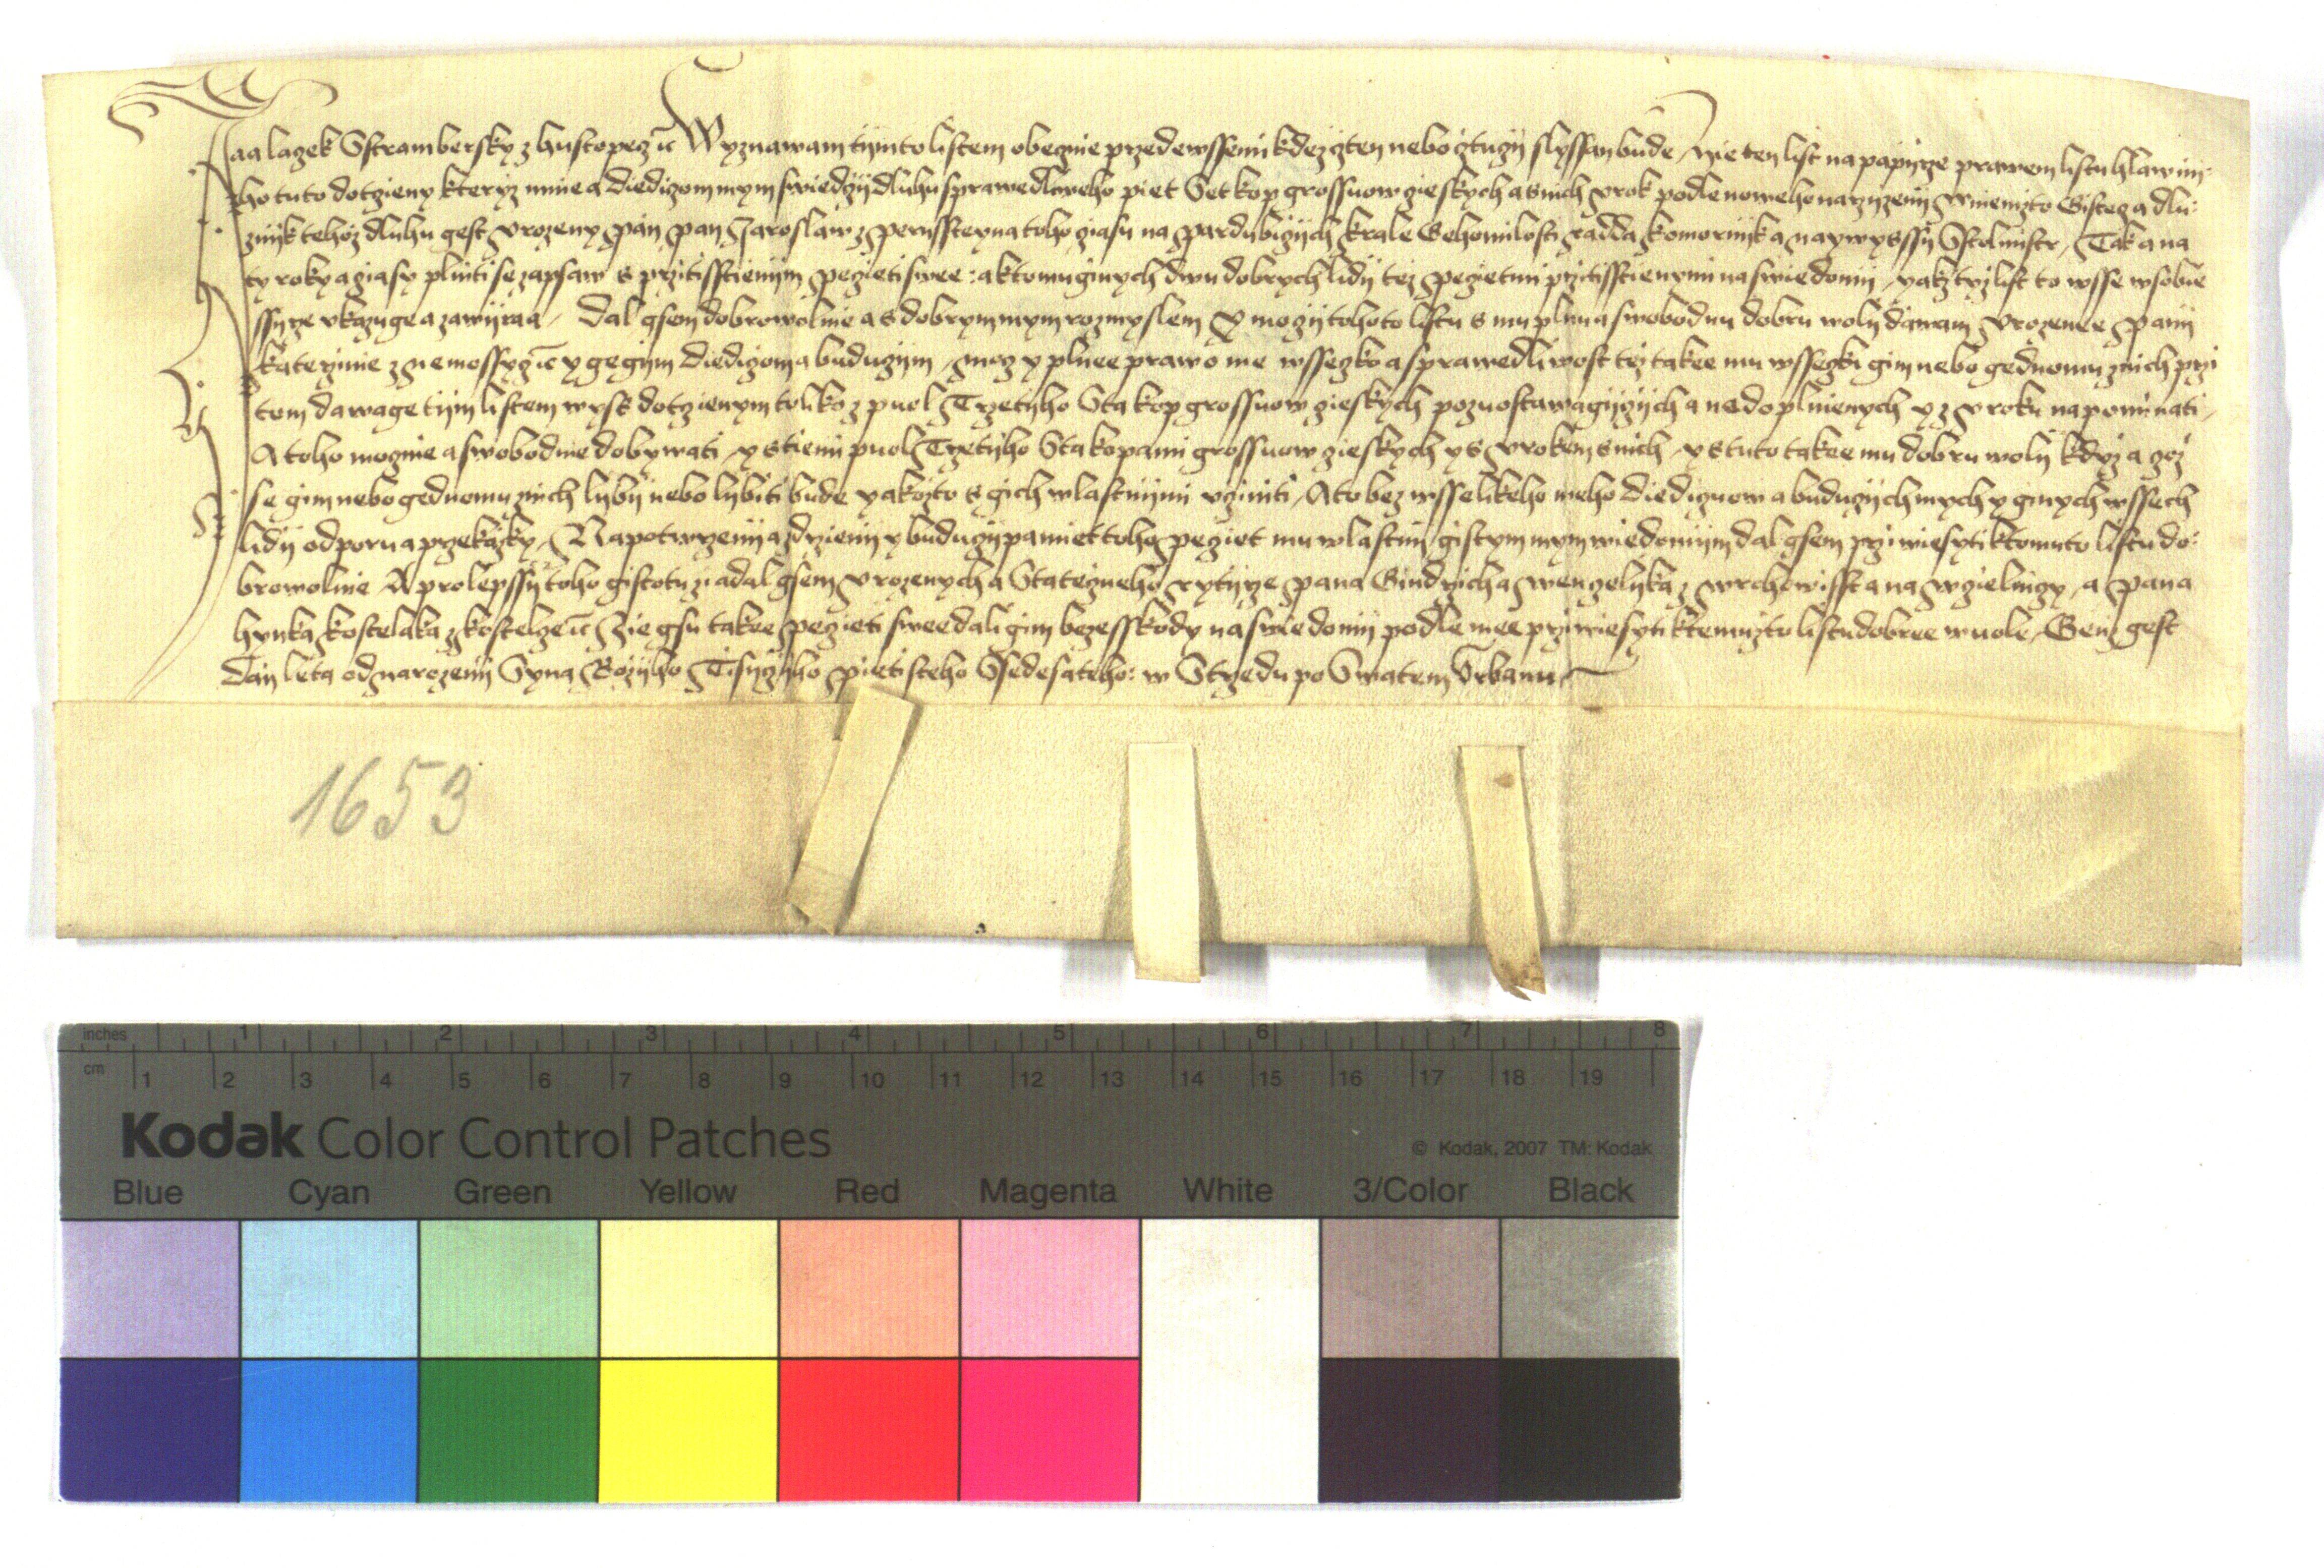 Jaa lazek Sstrambersky z hustopecz ꝛc Wyznawam tijmto listem obecznie przede wssemi kdez cžten nebo cžtugij slyssan bude, Jzie ten list na papijrze prawem listu hlawnij-
ho tuto dotczieny kteryz mnie a diediczom mym swiedczij dluhu sprawedliweho piet Set kop grossuow czieskych a s nich vrok podle noweho narzyzenij w niemzto Gistecz a dlu:
znijk tehoz dluhu gest vrozeny pan pan Jaroslaw z pernssteyna toho cziasu na pardubiczijch krale Geho milosti radda komornijk a naywyssij Sstolmistr, Tak a na
ty roky a cziasy plniti se zapsaw s przitisstienijm peczieti swee: a k tomu ginych dwu dobrych lidij tez peczietmi przitisstienymi na swiedomij, yakz tyz list to wsse w sobie
ssyrze vkazuge a zawijraa, Dal gsem dobrowolnie a s dobrym mym rozmyslem Y moczij tohoto listu s nim plnu a swobodnu dobru woli dawam vrozenee panij
Katerzinie z nemossycz ꝛc y gegijm diediczom a buduczijm, mocz y plnee prawo me wsseczko a sprawedliwost tez takee mu wsseczki gim nebo gednomu z nich przi
tom dawage tijm listem wyss dotczienym toliko z puol Trzetijho Sta kop grossuow czieskych pozuostawagijczijch a nedoplnienych y z vroku napominati,
A toho moczne a swobodnie dobywati, y s tiemi puol Trzetijho Sta kopami grossuow czieskych y s vrokem s nich, y s tuto takee mu dobru woli kdyz a cžoz
se gim nebo gednomu z nich lybij nebo lybiti bude yakozto s gich wlastnijmi vcziniti, A to bez wsselikeho meho diediczuow a buduczijch mych y ginych wssech
lidij odporu a przekazky, Na potwrzenij a zdrzienij y buduczij pamiet toho peczet mu wlastnij gistym mym wiedomijm dal gsem przi wiesyti k tomuto listu do:
browolnie A pro lepssij toho gistotu ziadal gsem vrozenych a Stateczneho rytijrze pana Gindrzicha wenczelyka z wrchowisst a na wzielniczy, a pana
hynka kostelaka z kostelcze ꝛc Zie gsu takee peczieti swee dali gim bezesskody na swiedomij podle mee przi wiesyti k temuzto listu dobree wuole, Genz gest
Dan leta od narozenij Syna Bozijho Tisijczijho pietisteho Ssedesateho: w Strzedu po Swatem Vrbanu
1653
inches 1 2 3 4 5 6 7 8
cm 1 2 3 4 5 6 7 8 9 10 11 12 13 14 15 16 17 18 19
Kodak Color Control Patches
© Kodak, 2007 TM: Kodak
Blue Cyan Green Yellow Red Magenta White 3/Color Black